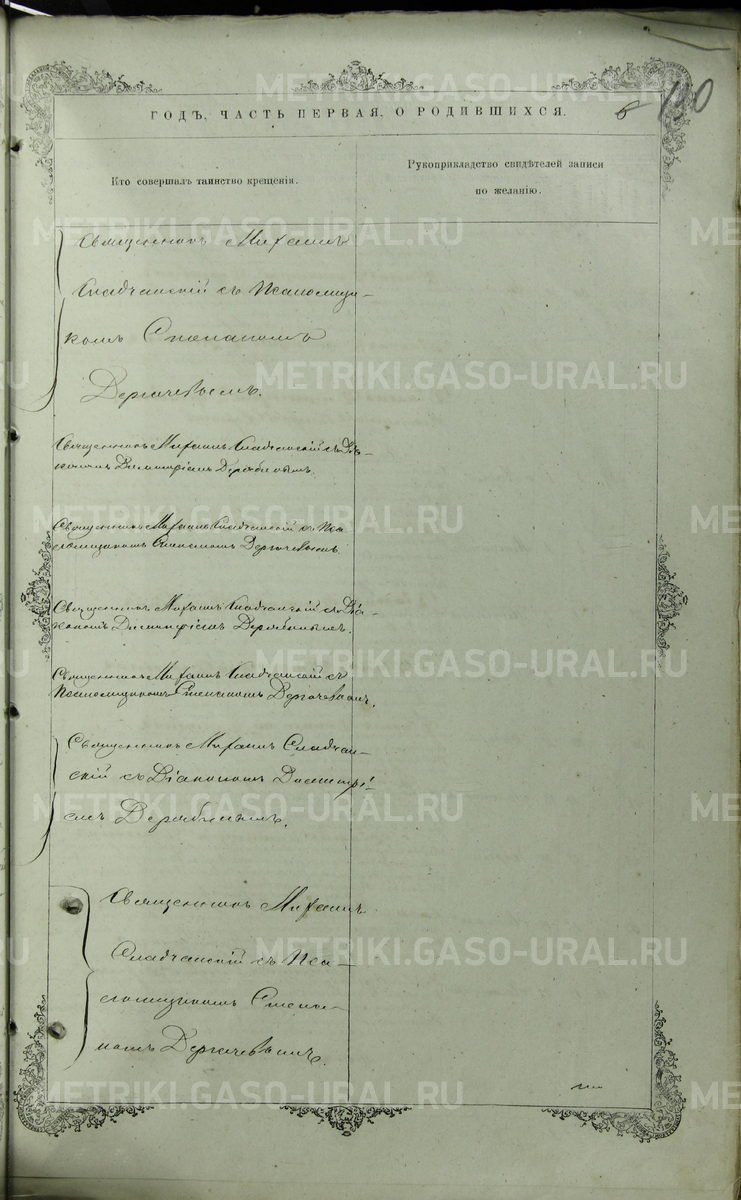 ГОДЪ, ЧАСТЬ ПЕРВАЯ, О РОДИВШИХСЯ.
6
Кто совершалъ таинство крещенія.
Рукоприкладство свидѣтелей записи
по желанію.
Священникъ Михаилъ
Сладчанскій съ Псаломщи-
комъ Степаномъ
Дергачевымъ.
Священникъ Михаилъ Сладчанскій съ Дiа-
кономъ Димитріемъ Дерябинымъ.
Священникъ Михаилъ Сладчанскій съ Пса
ломщикомъ Степаномъ Дергачевымъ.
Священникъ Михаилъ Сладчанскій съ Діа-
кономъ Димитріемъ Дерябинымъ.
Священникъ Михаилъ Сладчанскій съ
Псаломщикомъ Степаномъ Дергачевымъ.
Священникъ Михаилъ Сладчан-
скій съ Діакономъ Димитрі-
емъ Дерябинымъ.
Священникъ Михаилъ
Сладчанскій съ Пса-
ломщикомъ Степа-
номъ Дергачевымъ.
METRIKI.GASO-URAL.RU